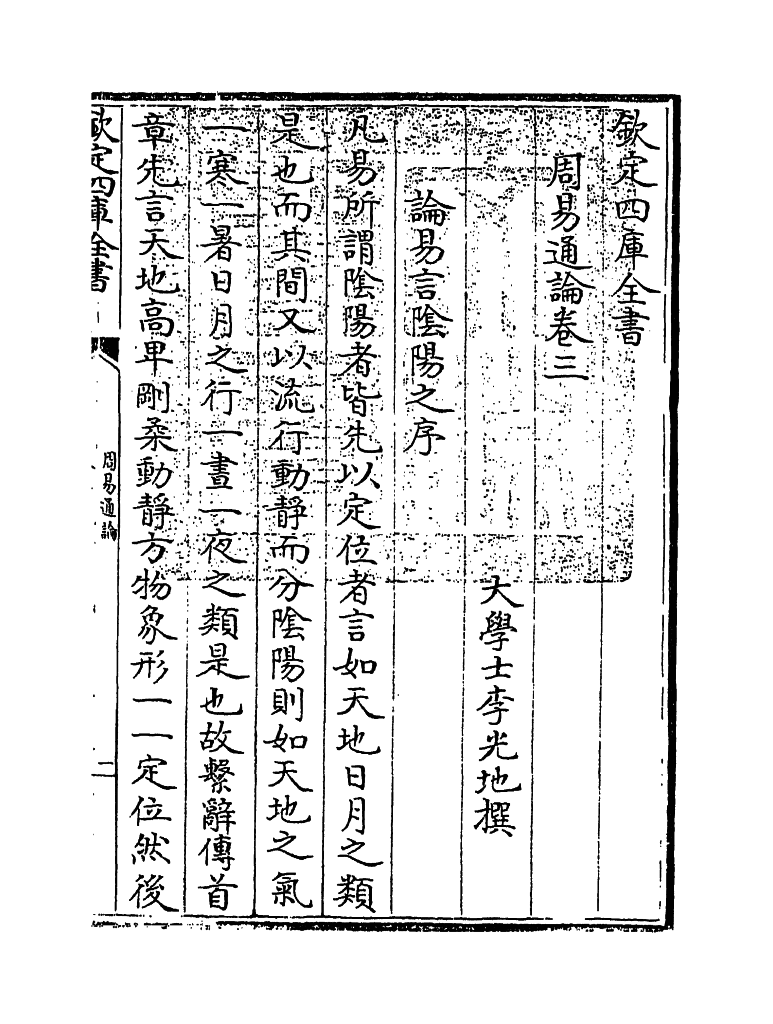 欽定四庫全書
周易通論卷三
大學士李光地撰
論易言陰陽之序
凡易所謂陰陽者皆先以定位者言如天地日月之類
是也而其間又以流行動靜而分陰陽則如天地之氣
一寒一暑日月之行一晝一夜之類是也故繫辭傳首
章先言天地高卑剛柔動靜方物象形一一定位然後
欽定四庫全書
周易通論